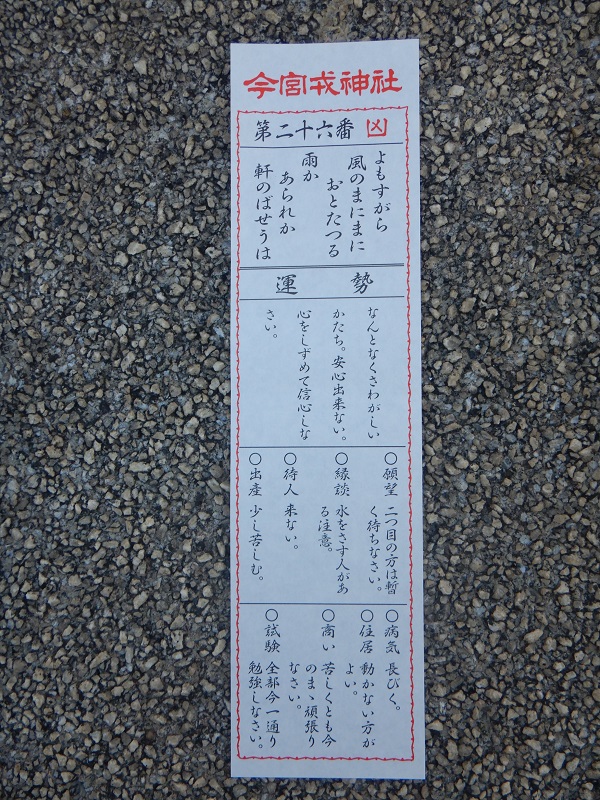 今宮戎神社
第二十六番 凶
よもすがら
風のまにまに
おとたつる
雨か
あられか
軒のばせうは
運勢
なんとなくさわがしい
かたち。安心出来ない。
心をしずめて信心しな
さい。
○願望 二つ目の方は暫
く待ちなさい。
○縁談 水をさす人があ
る注意。
○待人 来ない。
○出産 少し苦しむ。
○病気 長びく。
○住居 動かない方が
よい。
○商い 苦しくとも今
のまゝ頑張り
なさい。
○試験 全部今一通り
勉強しなさい。